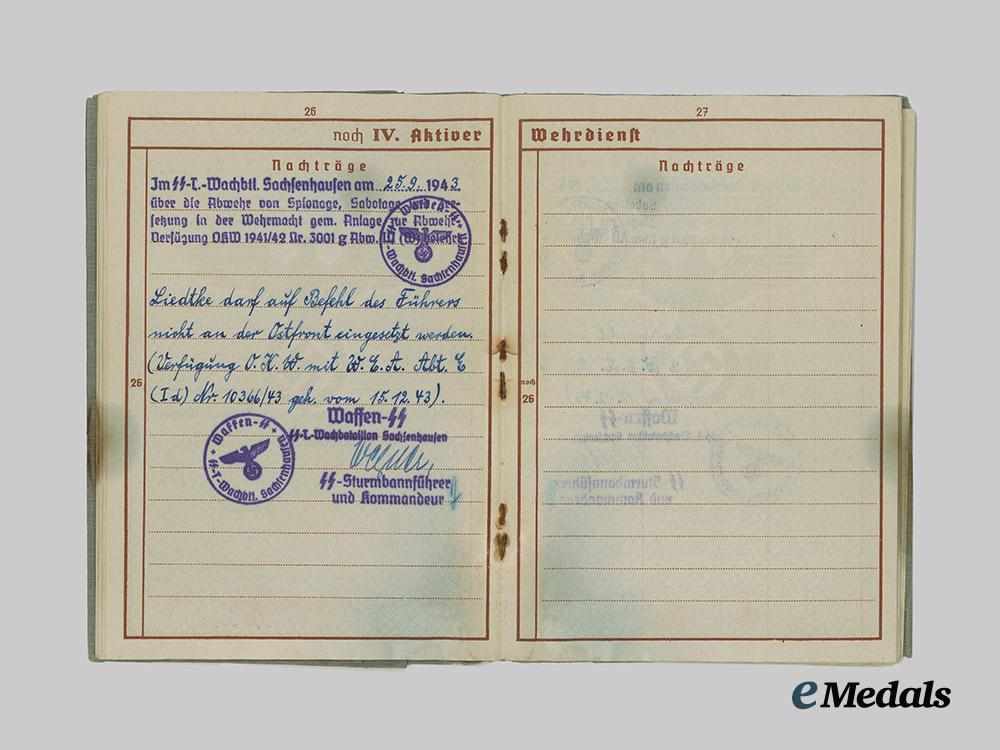 26
noch IV. Aktiver
Nachträge
Im SS-T.-Wachbtl. Sachsenhausen am 25.9. 1943
über die Abwehr von Spionage, Sabotage
setzung in der Wehrmacht gem. Anlage zur Abwehr
Verfügung OKW 1941/42 Nr. 3001 g Abw. III (W) belehrt
Waffen-SS
SS-T.-Wachbtl. Sachsenhausen
Liedtke darf auf Befehl des Führers
nicht an der Ostfront eingesetzt werden.
(Verfügung O.K.W. mit W.E.A. Abt. E
26
(Id) Nr. 10366/43 geh. vom 15.12.43).
Waffen-SS
SS-T.-Wachbataillon Sachsenhausen
SS-Sturmbannführer
und Kommandeur
Waffen-SS
SS-T.-Wachbtl. Sachsenhausen
27
Wehrdienst
Nachträge
noch
26
eMedals